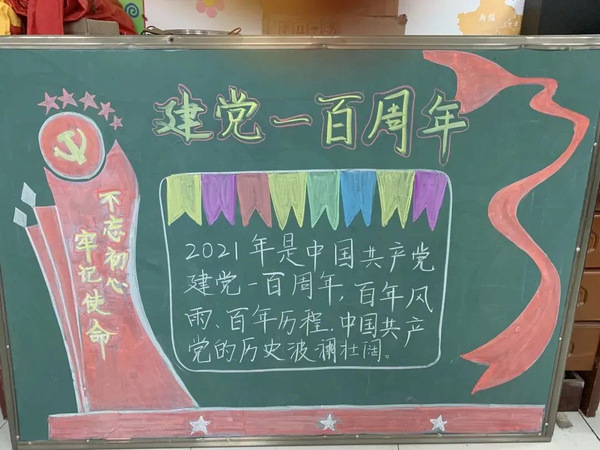 建党一百周年
不忘初心
牢记使命
2021年是中国共产党
建党一百周年,百年风
雨、百年历程,中国共产
党的历史波澜壮阔。